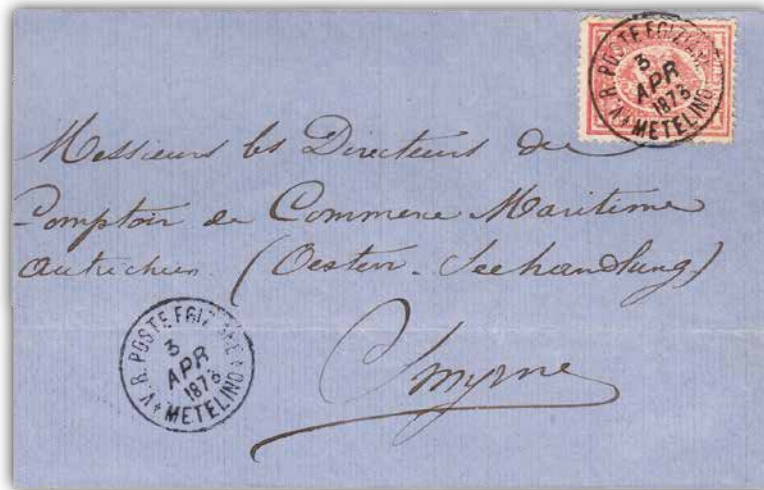 V. R. POSTE EGIZIANE
3
APR
1873
METELINO
Messieurs les Directeurs du
Comptoir de Commerce Maritime
Autrichien (Oesterr. Seehandlung)
Smyrne
V. R. POSTE EGIZIANE
3
APR
1873
METELINO